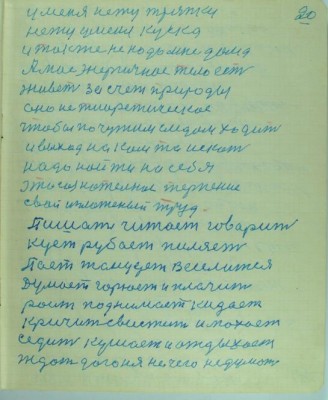 20
у меня нету тряпки
нету у меня куска
и тоже не подымие дома
А мое энергичное тело ест
живет за счет природы
оно не теиретическое
чтобы по чужим следам ходит
и выход на кой то искат
надо найти на себя
это сознателное терпение
свой изложеный труд.
Пишет читает говорит
кует рубает пиляет
Пает танцует Веселится
Думает горюет и плачит
роит поднимает кидает
кричит свистит и похает
седит кушает и отдыхает
ждет дагоня нечего недумает